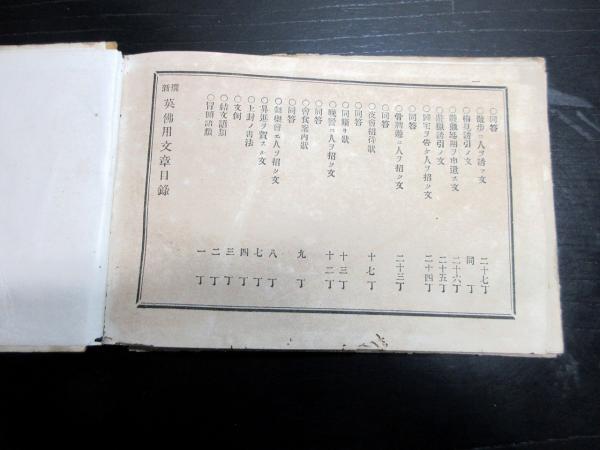 新撰 英佛用文章目錄
○冒頭語類 一丁
○結文語類 二丁
○文例 三丁
○上封ノ書法 四丁
○昇進ヲ賀スル文 七丁
○舞樂會ニ人ヲ招ク文 八丁
○同答
○會食案內狀 九丁
○同答
○晚餐ニ人ヲ招ク文 十二丁
○同斷リ狀 十三丁
○同答
○夜會招待狀 十七丁
○同答
○骨牌遊ニ人ヲ招ク文 二十三丁
○歸宅ヲ告ケ人ヲ招ク文 二十四丁
○遊獵誘引ノ文 二十五丁
○遊獵延期ヲ申送ス文 二十六丁
○梅見誘引ノ文 同丁
○散步ニ人ヲ誘フ文 二十七丁
○同答
一